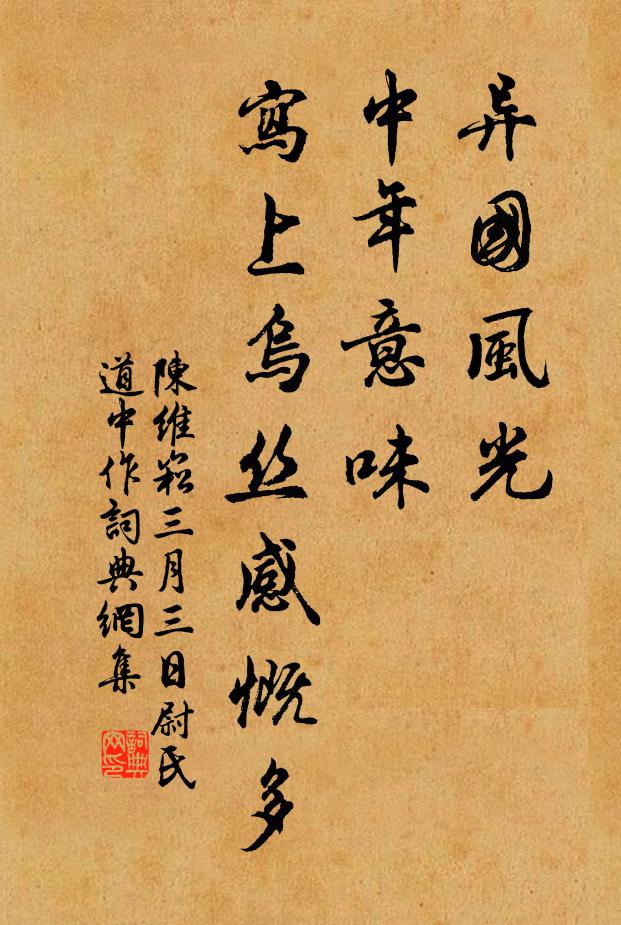 异國風光
中年意味
寫上烏丝感慨多
陳維崧三月三日尉氏
道中作詞典網集
詞典
网印